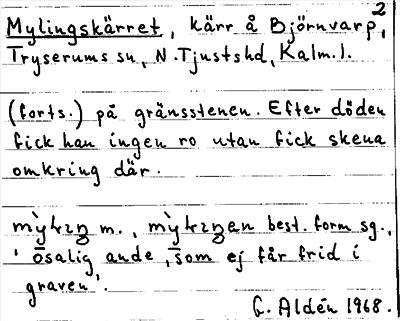 2
Mylingskärret, kärr å Björnvarp,
Tryserums sn, N. Tjustshd, Kalm. l.
(forts.) på gränsstenen. Efter döden
fick han ingen ro utan fick skena
omkring där.
m. , best. form sg.,
' osalig ande, som ej får frid i
graven'.
G. Aldén 1968.